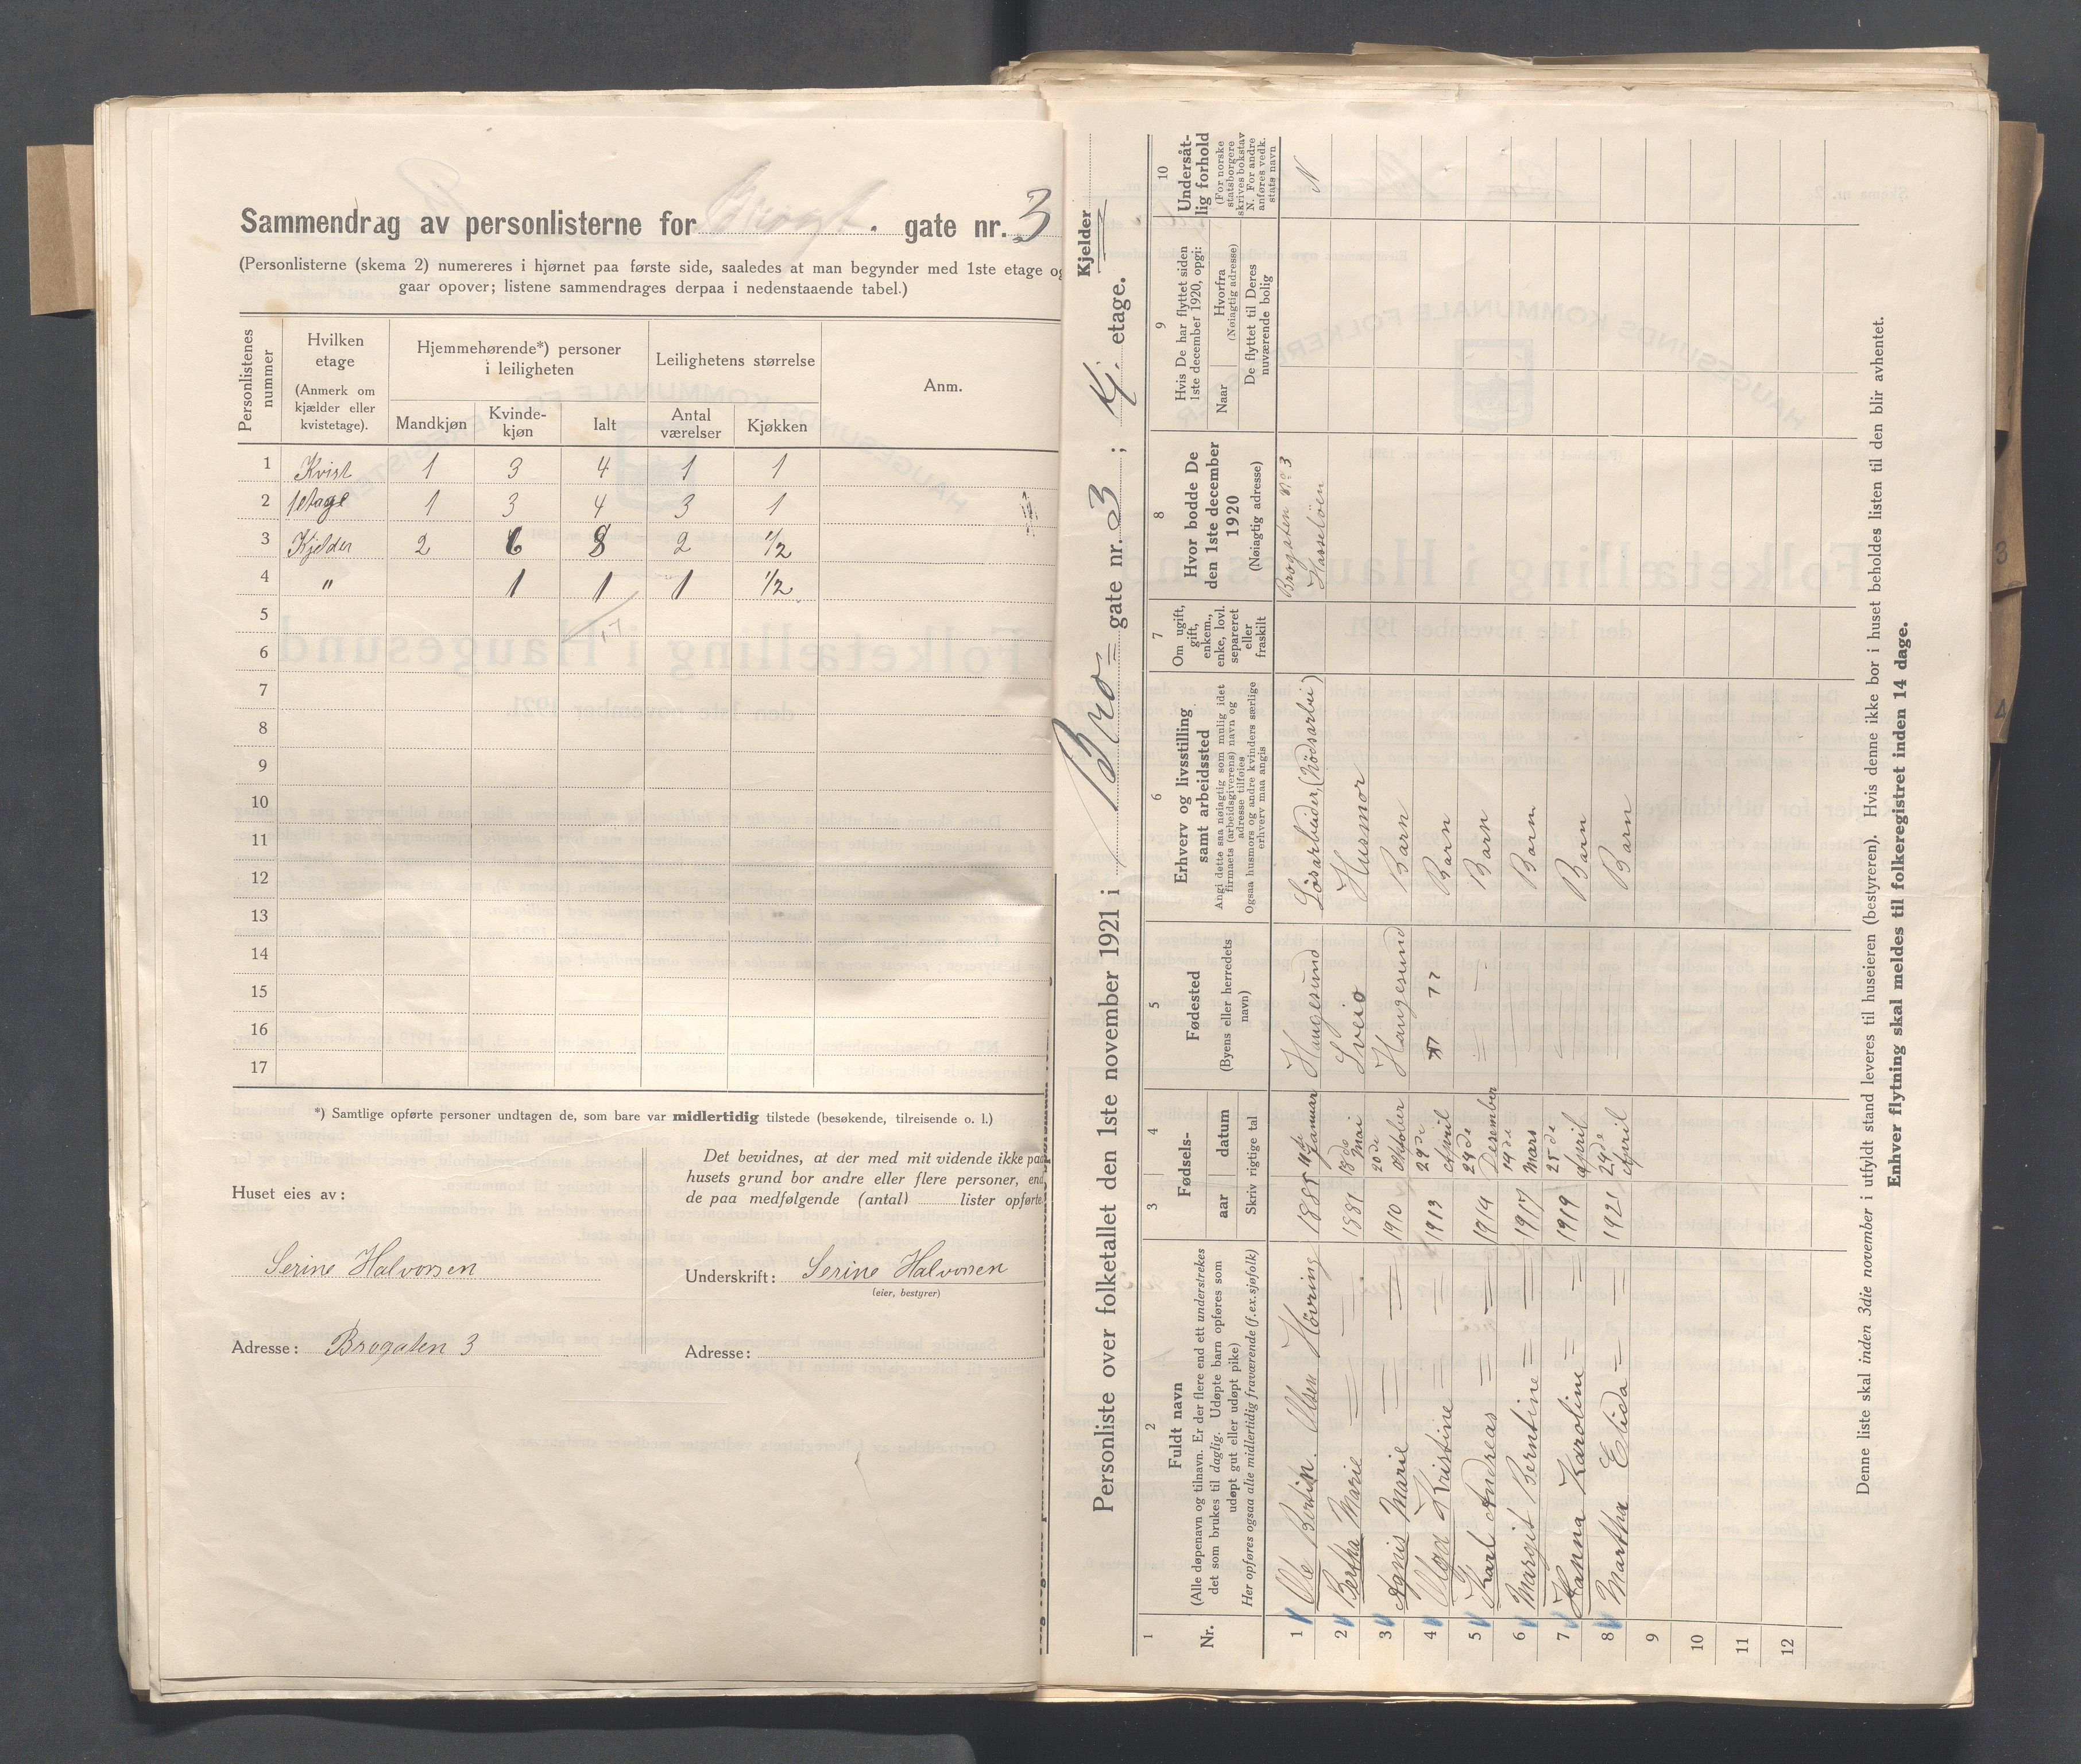 Sammendrag av personlisterne for Brogt. gate nr. 3
(Personlisterne (skema 2) numereres i hjørnet paa første side, saaledes at man begynder med 1ste etage og
gaar opover; listene sammendrages derpaa i nedenstaaende tabel.)
Personlistenes nummer | Hvilken etage (Anmerk om kjælder eller kvistetage). | Hjemmehørende*) personer i leiligheten | Leilighetens størrelse | Anm.
Mandkjøn | Kvinde-kjøn | Ialt | Antal værelser | Kjøkken
1 Kvist 1 3 4 1 1
2 1 etage 1 3 4 3 1
3 Kjelder 2 6 8 2 1/2
4 " 1 1 1 1/2
5
6 17
7
8
9
10
11
12
13
14
15
16
17
*) Samtlige opførte personer undtagen de, som bare var midlertidig tilstede (besøkende, tilreisende o. l.)
Huset eies av:
Serine Halvorsen
Adresse: Brogaten 3
Det bevidnes, at der med mit vidende ikke paa
husets grund bor andre eller flere personer, end
de paa medfølgende (antal) lister opførte
Underskrift: Serine Halvorsen
(eier, bestyrer)
Adresse:
Personliste over folketallet den 1ste november 1921 i Bro= gate nr. 3 ; Kj. etage.
Kjelder
1 Nr.
2 Fuldt navn
(Alle døpenavn og tilnavn. Er der flere end ett understrekes
det som brukes til daglig. Udøpte barn opføres som
udøpt gut eller udøpt pike)
Her opføres ogsaa alle midlertidig fraværende (f.ex. sjøfolk)
3 4 Fødsels-
aar | datum
Skriv rigtige tal
5 Fødested
(Byens eller herredets
navn)
6 Erhverv og livsstilling
samt arbeidssted
Angi dette saa nøiagtig som mulig idet
firmaets (arbeidsgiverens) navn og
adresse tilføies
Ogsaa husmors og andre kvinders særlige
erhverv maa angis
7 Om ugift,
gift,
enkem.,
enke, lovl.
separeret
eller
fraskilt
8 Hvor bodde De
den 1ste december
1920
(Nøiagtig adresse)
9 Hvis De har flyttet siden
1ste december 1920, opgi:
Naar | Hvorfra
(Nøiagtig adresse)
De flyttet til Deres
nuværende bolig
10 Undersåt-
lig forhold
(For norske
statsborgere
skrives bokstav
N. For andre
anføres vedk.
stats navn
1 Ole Bertin. Olsen Høvring 1885 11te Januar Haugesund Løsarbeider, (Nødsarbei) Brogaten No 3 Hasseløen N
2 Bertha Marie = = 1881 18de Mai Sveio Husmor
3 Agnis Marie = = 1910 20de Oktober Haugesund Barn
4 Olga Kristine = = 1913 29de April " " Barn
5 Karl Andreas = = 1914 24de Desember = = Barn
6 Margit Berntine = = 1917 19de Mars Barn
7 Hanna Karoline = = 1919 25de April Barn
8 Martha Elida = = 1921 24de April Barn
9
10
11
12
Denne liste skal inden 3die november i utfyldt stand leveres til huseieren (bestyreren). Hvis denne ikke bor i huset beholdes listen til den blir avhentet.
Enhver flytning skal meldes til folkeregistret inden 14 dage.